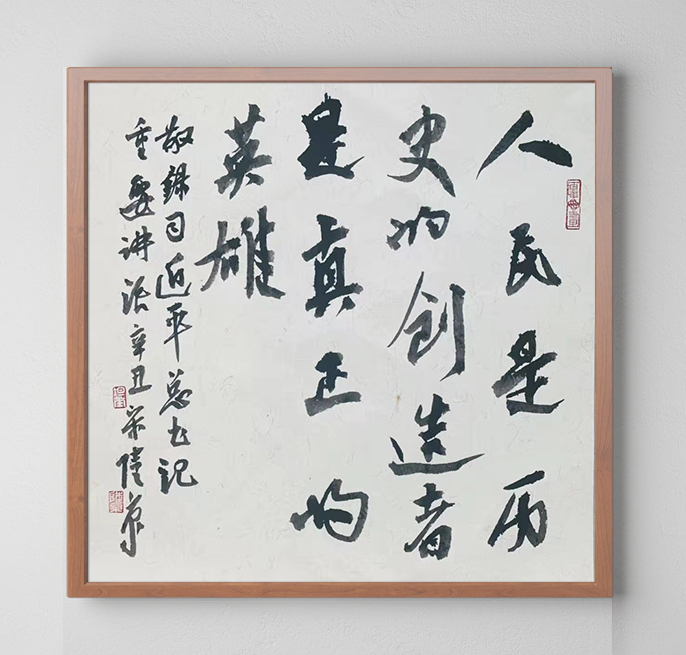 人民是历
史的创造者
是真正的
英雄
敬录习近平总书记
重要讲话辛丑宋陆京